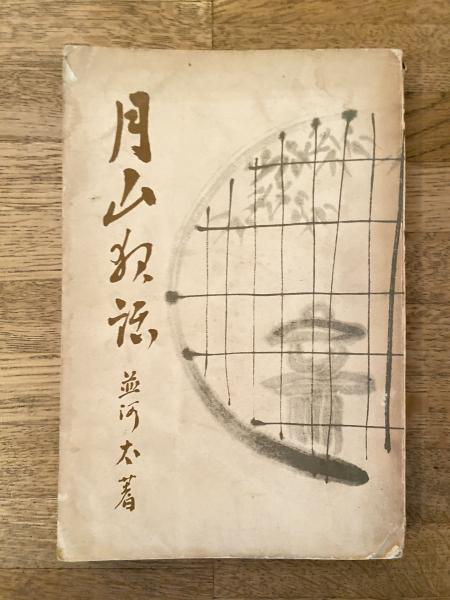 月山夜話
並河太著